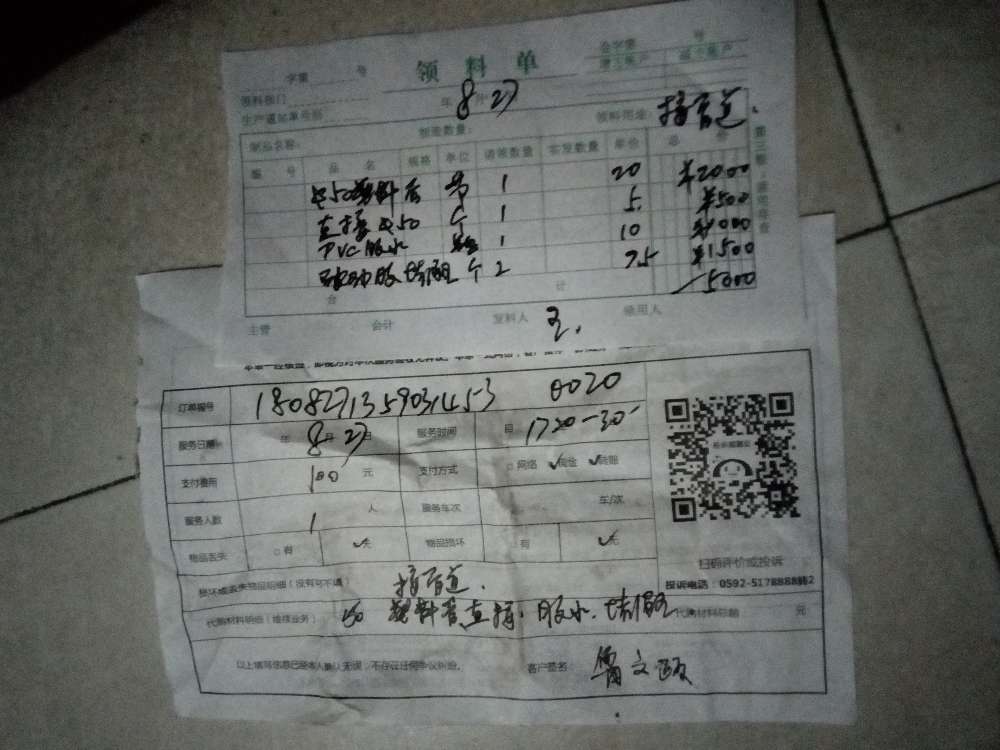 字第 号 领料单 会字第 号
领料部门 年 8月27
生产通知单号别 领料用途: 接管道.
制品名称: 制造数量:
编号 品名 规格 单位 请领数量 实发数量 单价 总价
50塑料管 1 20 ¥2000
直接 50 个 1 5. ¥500
PVC胶水 1 10 ¥1000
堵漏 个 2 75 ¥1500
合 计 5000
主管 会计 发料人 王. 领用人
订单编号 180827135903453 0020
服务日期 年 8月27日 服务时间 1720-30
支付费用 100 元 支付方式 □网络 ✓现金 ✓转账
服务人数 1 人 服务车次 车/次
物品丢失 □有 ✓无 物品损坏 □有 ✓无
扫码评价或投诉
损坏或丢失物品明细(没有可不填) 接管道. 投诉电话:0592-5178888转2
代购材料明细(维修业务) 50 塑料管直接. 胶水. 堵漏 代购材料总额 元
以上填写信息已经本人确认无误,不存在任何争议纠纷。 客户签名: